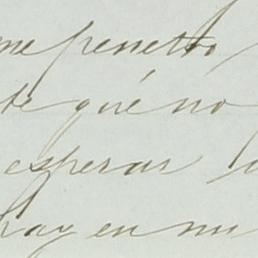 me penetro
de qué no
esperar
hay en mi